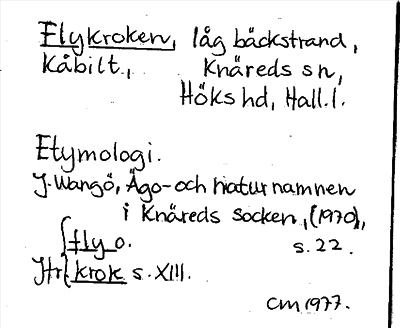 Flykroken, låg bäckstrand,
Kåbilt., Knäreds sn,
Höks hd, Hall. l.
Etymologi.
J. Wangö, Ägo- och naturnamnen
i Knäreds socken, (1970),
fly o. s. 22.
Jfr krok s. XIII.
CM 1977.